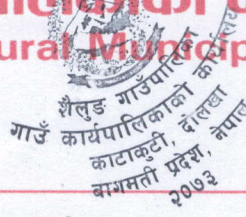 ural Municip
शैलुङ गाउँपालिका
गाउँ कार्यपालिकाको कार्यालय
काटाकुटी, दोलखा
बागमती प्रदेश, नेपाल
२०७३